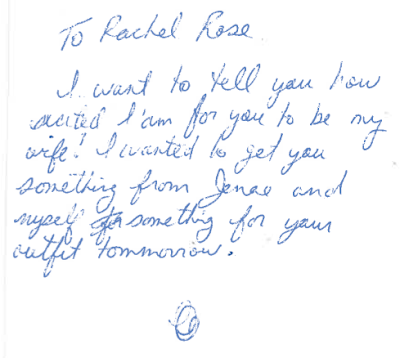 To Rachel Rose
I want to tell you how
excited I am for you to be my
wife! I wanted to get you
something from Jenae and
myself for something for your
outfit tommorrow.